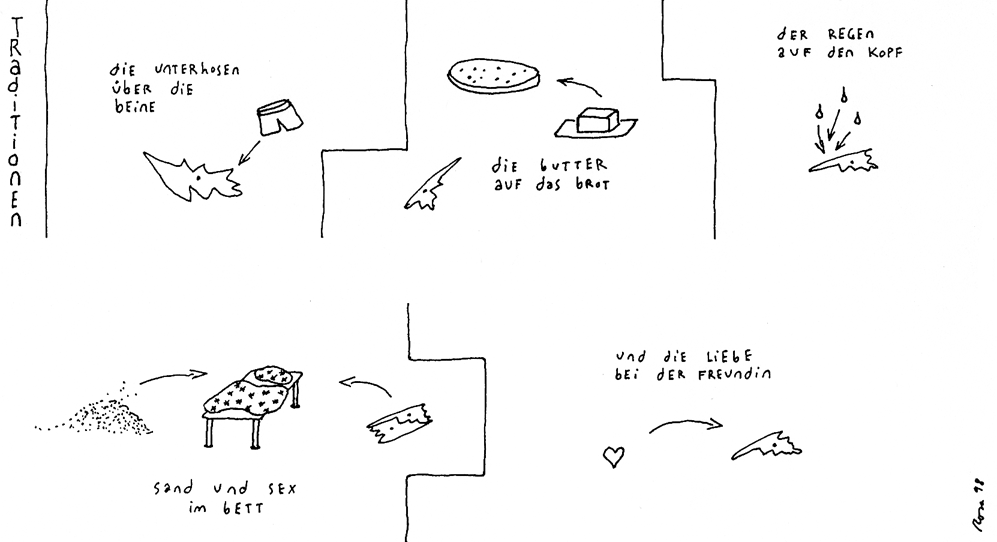 TRaditionEn
die UnTERhosEn
über die
bEinE
die bUTTER
auf das bRoT
dER REGEn
auf dEn Kopf
Sand und SEX
im bETT
und die LiEbE
bEi dER FREUndin